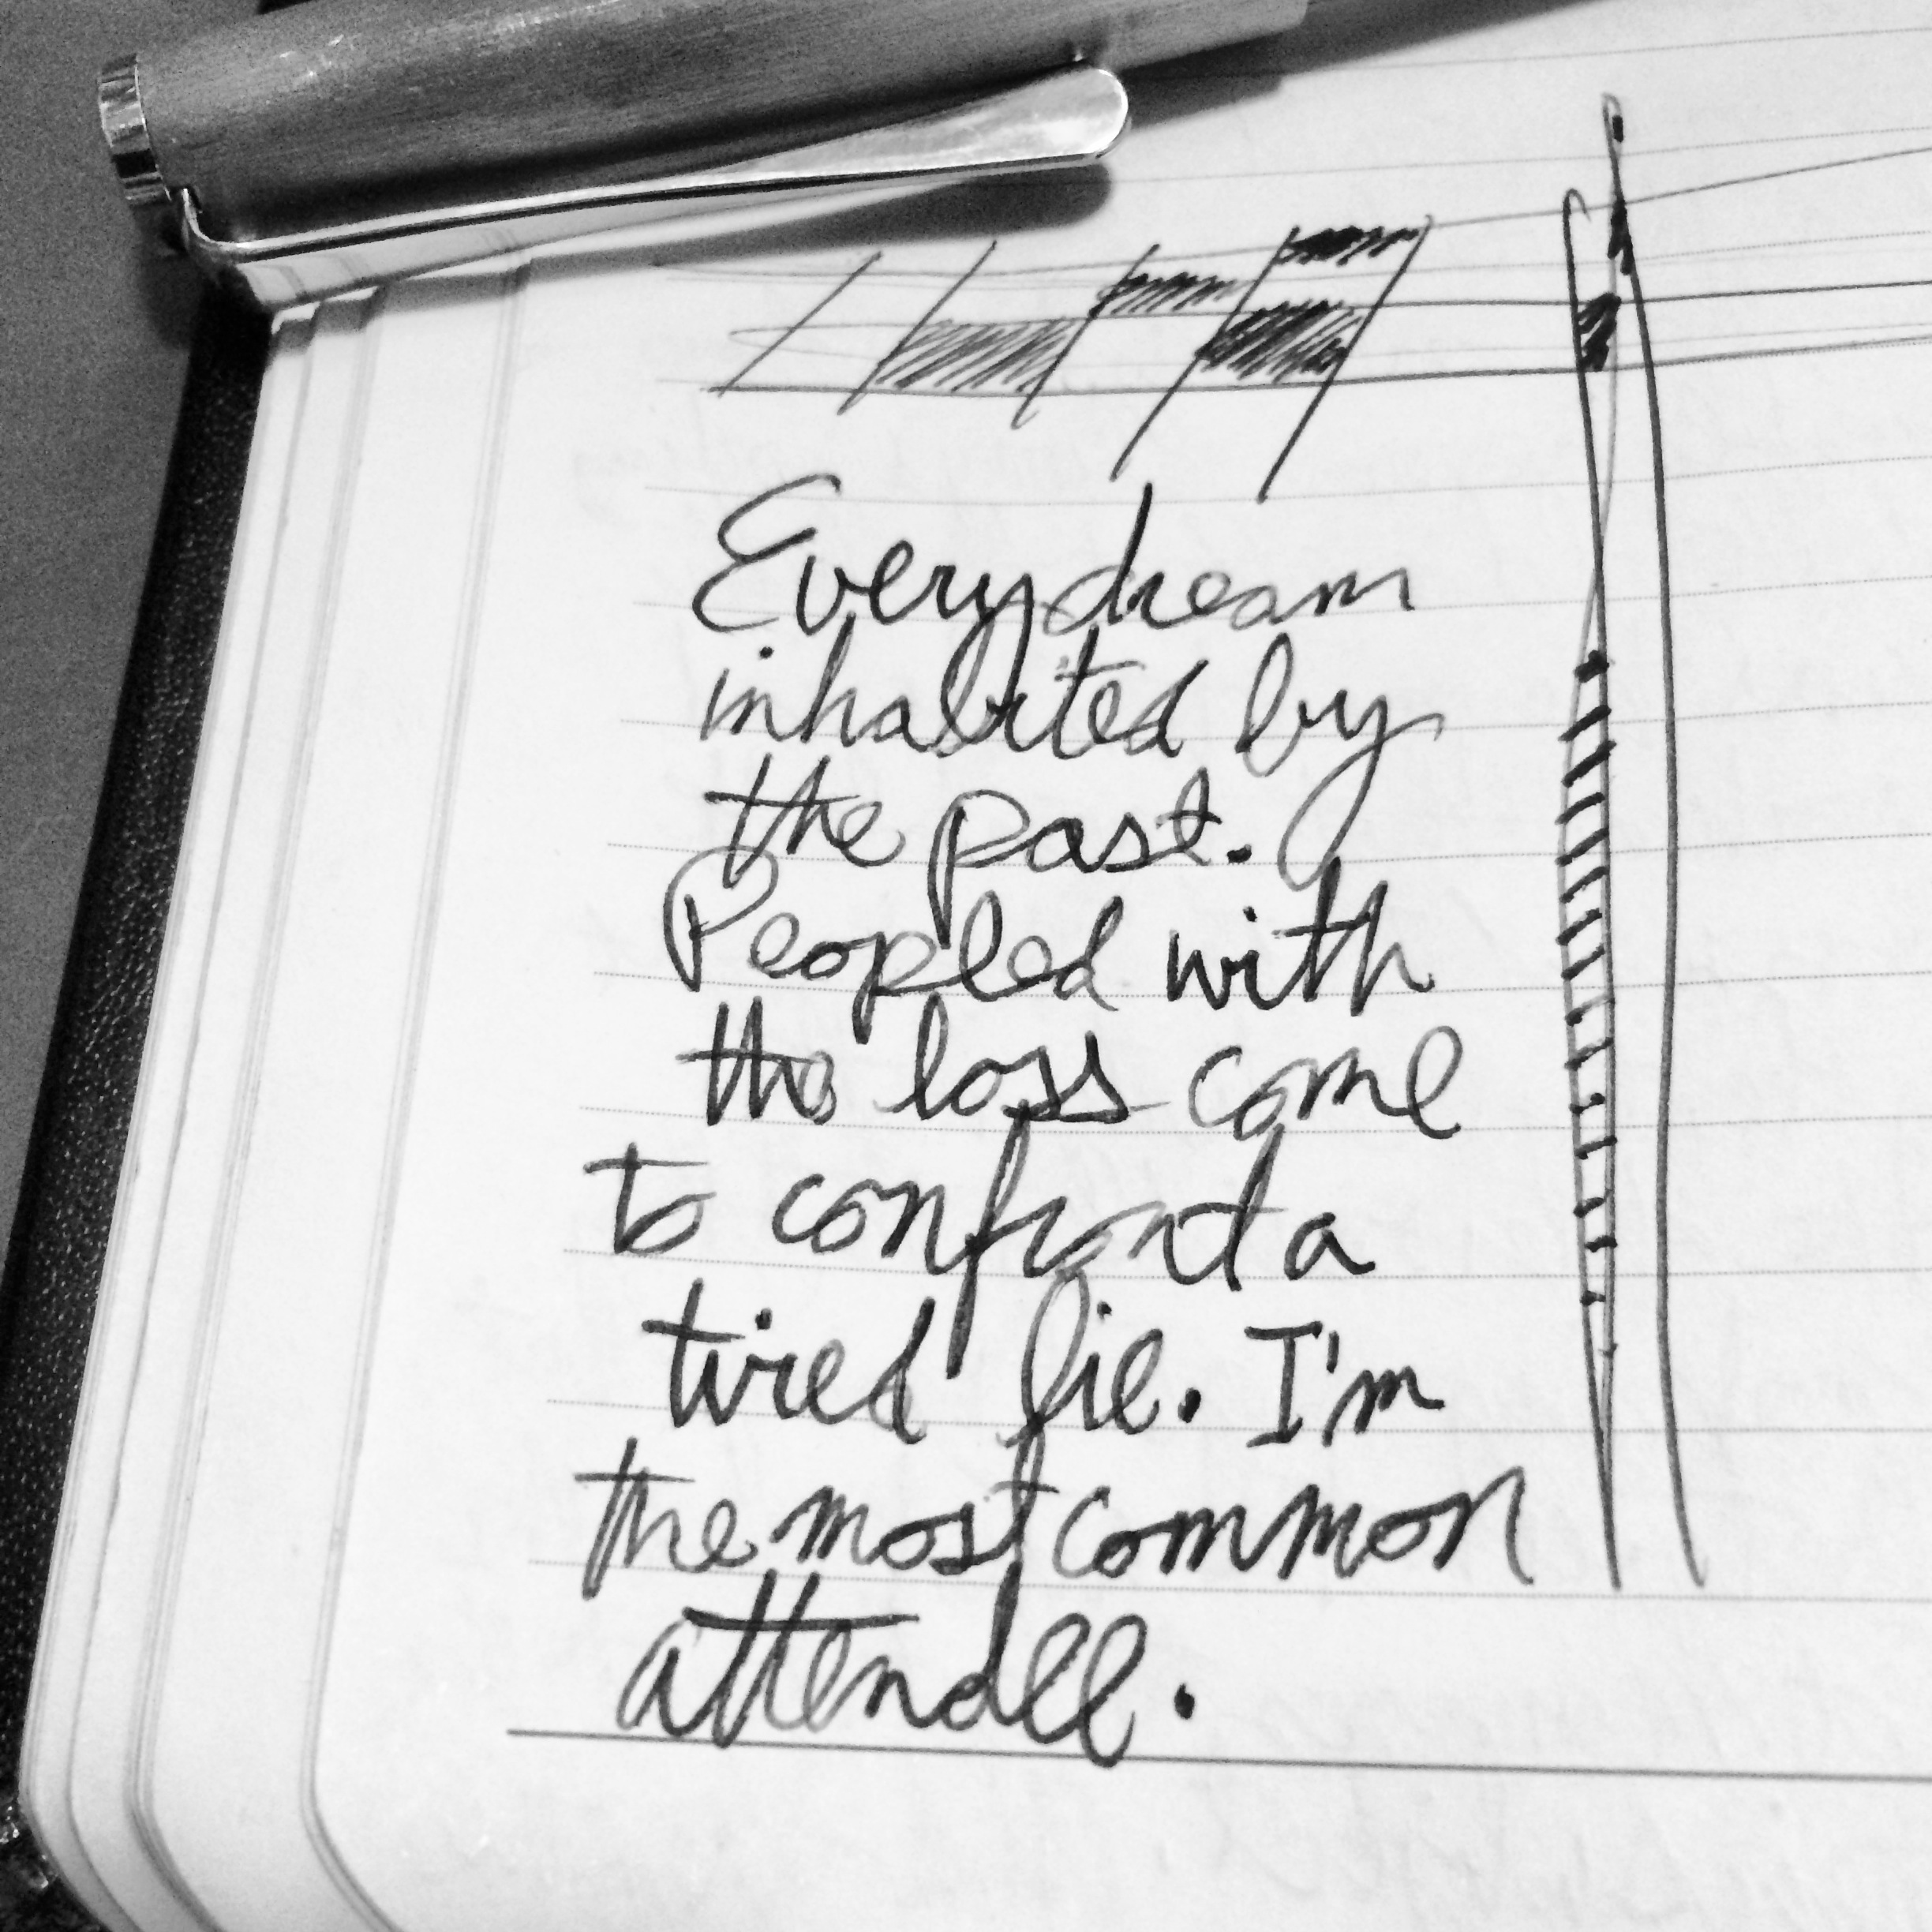 Every dream
inhabited by
the past.
Peopled with
the loss come
to confront a
tired lie. I'm
the most common
attendee.